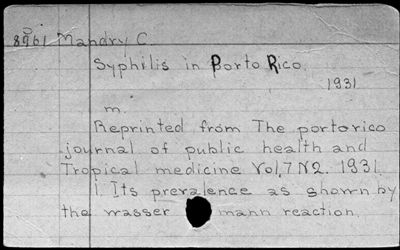 8961 Mandry C.
Syphilis in Porto Rico.
1931
m.
Reprinted from The portorico
journal of public health and
Tropical medicine Vol,7 N2. 1931.
1. Its prevalence as shown by
the wasser mann reaction.